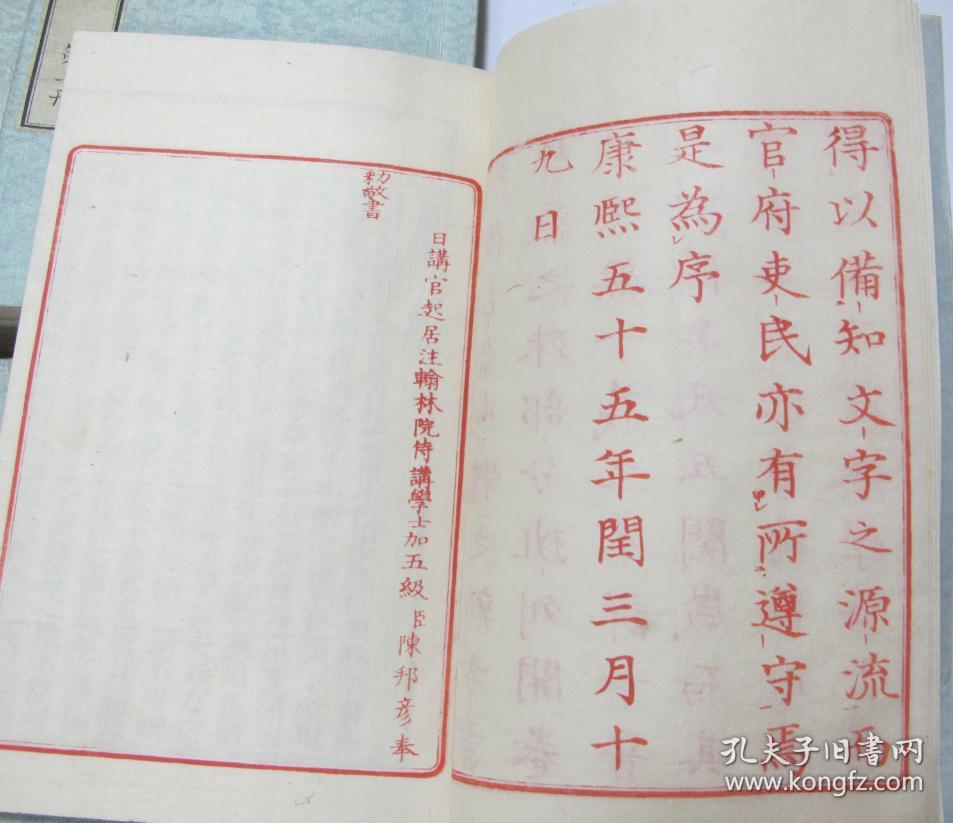 得以備知文字之源流而
官府吏民亦有所遵守焉
是為序
康熙五十五年閏三月十
九日
日講官起居注翰林院侍講學士加五級臣陳邦彥奉
勑敬書
孔夫子旧书网
www.kongfz.com